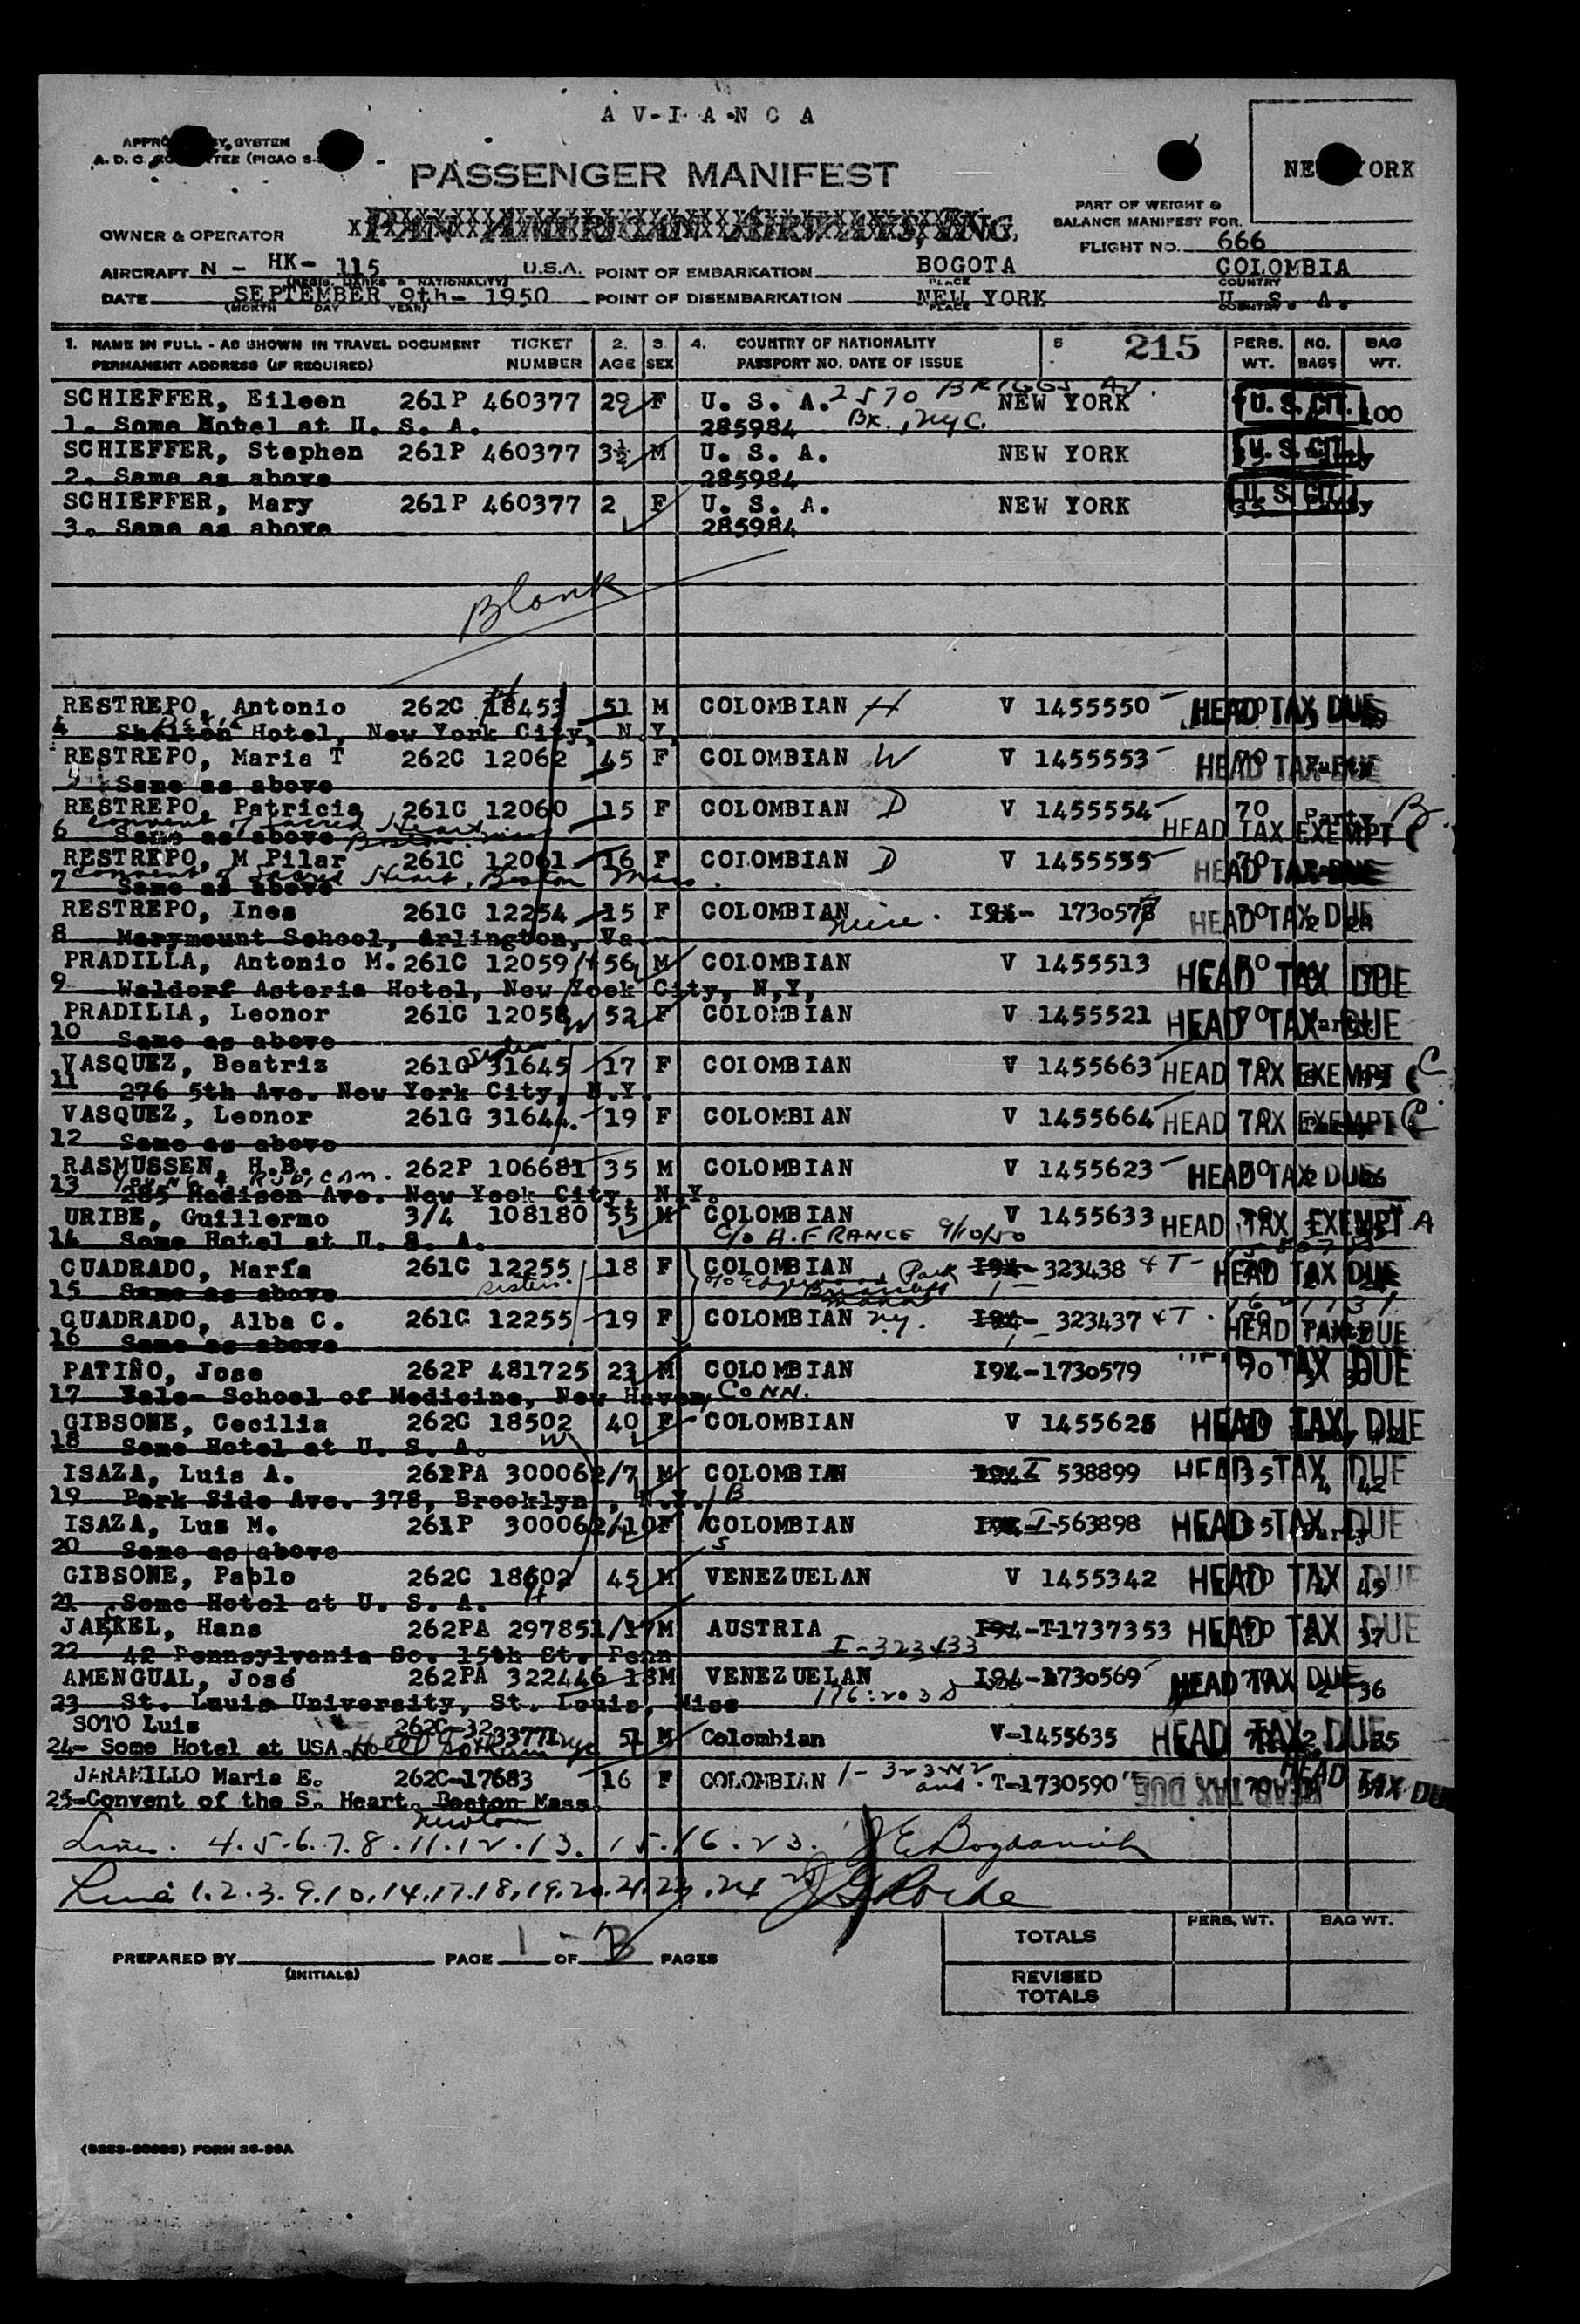 AVIANCA
NEW YORK
PASSENGER MANIFEST
PAN AMERICAN AIRWAYS, INC.
PART OF WEIGHT &
BALANCE MANIFEST FOR.
OWNER & OPERATOR
FLIGHT NO. 666
AIRCRAFT N - HK- 115 U.S.A. POINT OF EMBARKATION BOGOTA COLOMBIA
(REGIS. MARKS & NATIONALITY) PLACE COUNTRY
DATE SEPTEMBER 9th- 1950 POINT OF DISEMBARKATION NEW YORK U. S. A.
(MONTH DAY YEAR) PLACE COUNTRY
1. NAME IN FULL - AS SHOWN IN TRAVEL DOCUMENT TICKET 2. 3. 4. COUNTRY OF NATIONALITY 5. 215 PERS. NO. BAG
PERMANENT ADDRESS (IF REQUIRED) NUMBER AGE SEX PASSPORT NO. DATE OF ISSUE WT. BAGS WT.
SCHIEFFER, Eileen 261P 460377 29 F U. S. A. 2570 BRIGGS AV. NEW YORK U. S. CIT. 100
1. Some Hotel at U. S. A. 285984 Bx., NYC.
SCHIEFFER, Stephen 261P 460377 3½ M U. S. A. NEW YORK U. S. CIT.
2. Same as above 285984
SCHIEFFER, Mary 261P 460377 2 F U. S. A. NEW YORK U. S. CIT.
3. Same as above 285984
Blank
RESTREPO, Antonio 262C 18453 51 M COLOMBIAN H V 1455550 HEAD TAX DUE
4 Shelton Hotel, New York City, N.Y.
RESTREPO, Maria T 262C 12062 45 F COLOMBIAN W V 1455553 HEAD TAX DUE
5 Same as above
RESTREPO, Patricia 261C 12060 15 F COLOMBIAN D V 1455554 70 Party B
Convent of Sacred Heart
6 Same as above Boston HEAD TAX EXEMPT
RESTREPO, M Pilar 261C 12061 16 F COLOMBIAN D V 1455555 HEAD TAX DUE
Convent of Sacred Heart, Boston Mass.
7 Same as above
RESTREPO, Ines 261C 12254 15 F COLOMBIAN 173057 HEAD TAX DUE
8 Marymount School, Arlington, Va.
PRADILLA, Antonio M. 261C 12059 H 56 M COLOMBIAN V 1455513 HEAD TAX DUE
9 Waldorf Astoria Hotel, New York City, N,Y,
PRADILLA, Leonor 261C 12058 W 52 F COLOMBIAN V 1455521 HEAD TAX DUE
10 Same as above
VASQUEZ, Beatriz 261G 31645 17 F COLOMBIAN V 1455663 HEAD TAX EXEMPT C
11 276 5th Ave. New York City, N.Y.
VASQUEZ, Leonor 261G 31644 19 F COLOMBIAN V 1455664 HEAD TAX EXEMPT C
12 Same as above
RASMUSSEN, H.B. 262P 106681 35 M COLOMBIAN V 1455623 HEAD TAX DUE
YOUNG & RUBICAM.
13 285 Madison Ave. New York City, N.Y.
URIBE, Guillermo 3/4 108180 55 M COLOMBIAN V 1455633 HEAD TAX EXEMPT A
14 Some Hotel at U. S. A. C/o A. FRANCE 9/10/50
CUADRADO, María 261C 12255 18 F COLOMBIAN I94- 323438 HEAD TAX DUE
15 Same as above sisters
CUADRADO, Alba C. 261C 12255 19 F COLOMBIAN N.Y. I94- 323437 HEAD TAX DUE
16 Same as above
PATIÑO, Jose 262P 481725 23 M COLOMBIAN I94-1730579 TAX DUE
17 Yale- School of Medicine, New Haven, CONN.
GIBSONE, Cecilia 262C 18502 40 F COLOMBIAN V 1455626 HEAD TAX DUE
18 Some Hotel at U. S. A. W
ISAZA, Luis A. 262PA 300062/7 M COLOMBIAN I 538899 HEAD TAX DUE
19 Park Side Ave. 378, Brooklyn, N.Y. B
ISAZA, Luz M. 261P 300062/10 F COLOMBIAN I-563898 HEAD TAX DUE
20 Same as above S
GIBSONE, Pablo 262C 18602 45 M VENEZUELAN V 1455342 HEAD TAX DUE
21 Some Hotel at U. S. A. H
JAEKEL, Hans 262PA 297851/17 M AUSTRIA I94-T-1737353 HEAD TAX DUE
22 42 Pennsylvania So. 15th St. Penn I-323433
AMENGUAL, José 262PA 322446 18 M VENEZUELAN I94-1730569 HEAD TAX DUE 36
23 St. Louis University, St. Louis, Miss
SOTO Luis 51 M Colombian V-1455635 HEAD TAX DUE
24- Some Hotel at USA. Hotel Gotham NYC
JARAMILLO Maria E. 262C-17683 16 F COLOMBIAN T-1730590 HEAD TAX DUE
25-Convent of the S. Heart. Boston Mass.
Newton
Lines. 4.5.6.7.8.11.12.13. 15.16.23. J E Bogdanich
Line 1.2.3.9.10.14.17.18.19.20.21.22.24 J G Roche
PREPARED BY (INITIALS) PAGE 1 OF 3 PAGES
PERS. WT. BAG WT.
TOTALS
REVISED
TOTALS